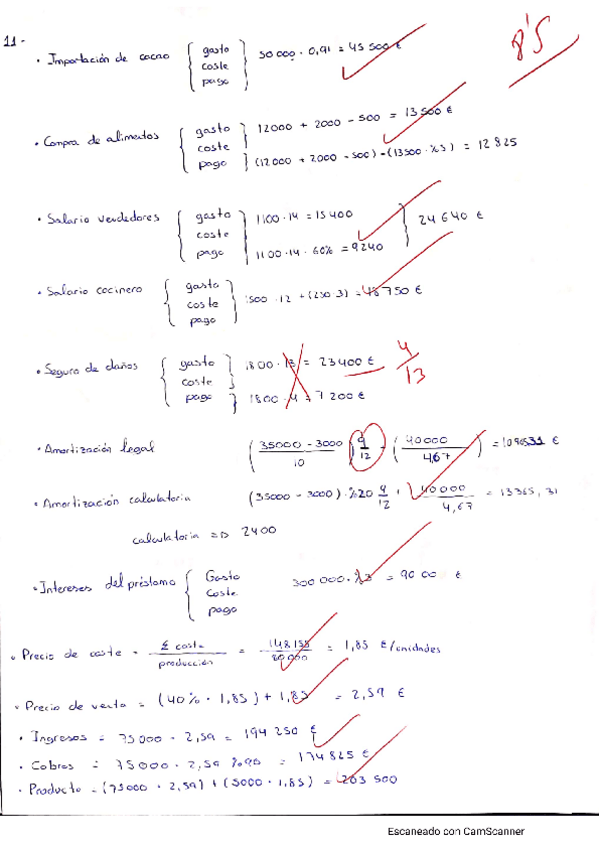 8'5
11-
• Importación de cacao { gasto coste pago } 50 000 · 0,91 = 45 500 €
• Compra de alimentos { gasto coste } 12000 + 2000 - 500 = 13 500 €
pago } (12 000 + 2000 - 500) - (13500 · %5) = 12 825
• Salario vendedores { gasto coste } 1100 · 14 = 15 400
pago 1100 · 14 · 60% = 9240 } 24 640 €
• Salario cocinero { gasto coste pago } 1500 · 12 + (250 · 3) = 18 750 €
• Seguro de daños { gasto coste } 1800 · 13 = 23400 € 4/13
pago } 1800 · 4 = 7 200 €
• Amortización legal (35000 - 3000 / 10) 9/12 + (40000 / 4,67) = €
• Amortización calculatoria (35000 - 3000) · %20 9/12 + 40000 / 4,67 = 13365, 31
calculatoria => 2400
• Intereses del préstamo { Gasto Coste pago 300 000 · %3 = 90 00 €
• Precio de coste = Σ coste / producción = 148 155 / 80 000 = 1,85 €/unidades
• Precio de venta = (40% · 1,85) + 1,85 = 2,59 €
• Ingresos = 75000 · 2,59 = 194 250 €
• Cobros = 75000 · 2,59 %90 = 174 825 €
• Producto = (75000 · 2,59) + (5000 · 1,85) = 203 500
Escaneado con CamScanner